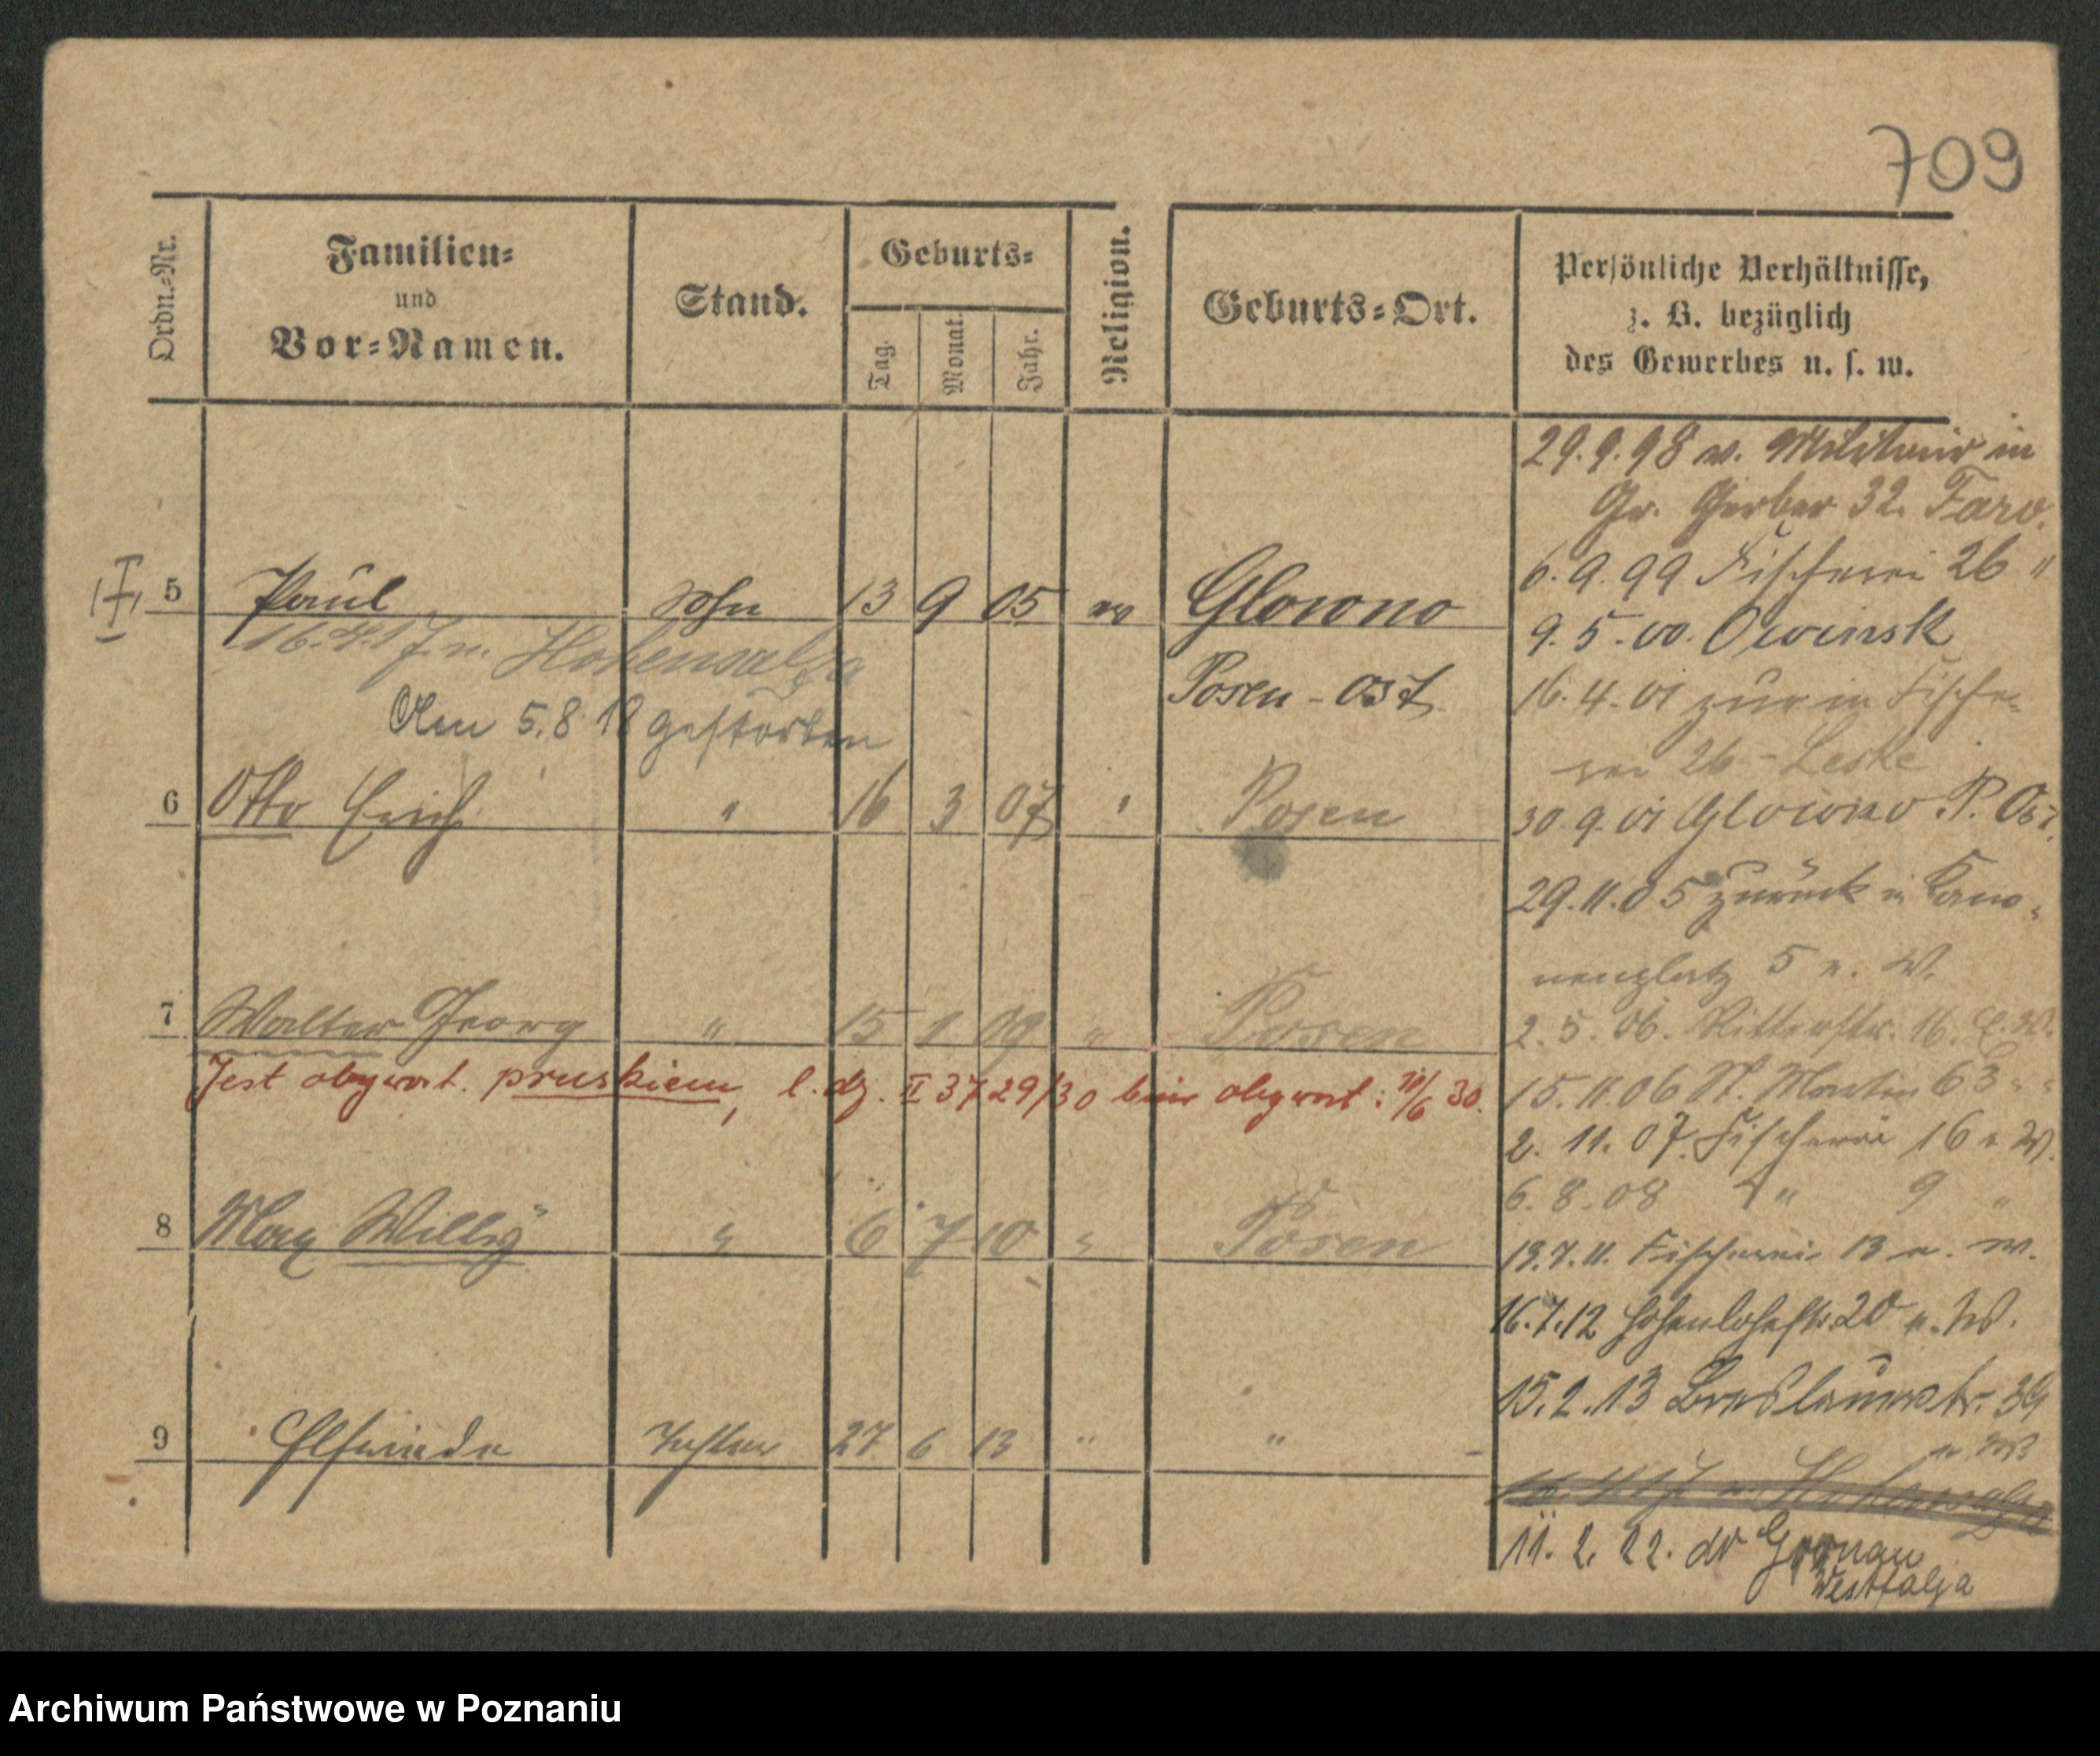 709
Ordn.-Nr.
Familien-
und
Vor-Namen.
Stand.
Geburts-
Tag.
Monat.
Jahr.
Religion.
Geburts-Ort.
Persönliche Verhältnisse,
z. B. bezüglich
des Gewerbes u. s. w.
29.9.98 v. Militair in
Gr. Gerber 32.
6.9.99 Fischerei 26 "
5 Paul Sohn 13 9 05 Glowno
9.5.00. Owinsk
16.4.17 n. Hohensalza
Posen-Ost
16.4.01 zur in Fische-
Am 5.8.18 gestorben
rei 26 - Leske
6 Otto Erich " 16 3 07 " Posen
30.9.01 Glowno P. Ost.
29.11.05 zurück in Kano-
nenplatz 5 n. W.
7 Walter Georg " 15 1 09 " Posen
2.5.06. Ritterstr. 16.
Jest obywat. pruskiem, l. dz. II 3729/30 obywat: /6 30.
15.11.06 St. Martin 63 " "
2.11.07. Fischerei 16 n W.
6.8.08 " " 9 "
8 Max Willy " 6 7 10 " Posen
13.7.11. Fischerei 13 n. W.
16.7.12 Hohenlohestr. 20 n. W.
15.2.13 Breslauerstr. 39
n W
9 Elfriede Tochter 27 6 13 " "
16.4.17 n. Hohensalza
11.2.22. do Gronau
Westfalja
Archiwum Państwowe w Poznaniu